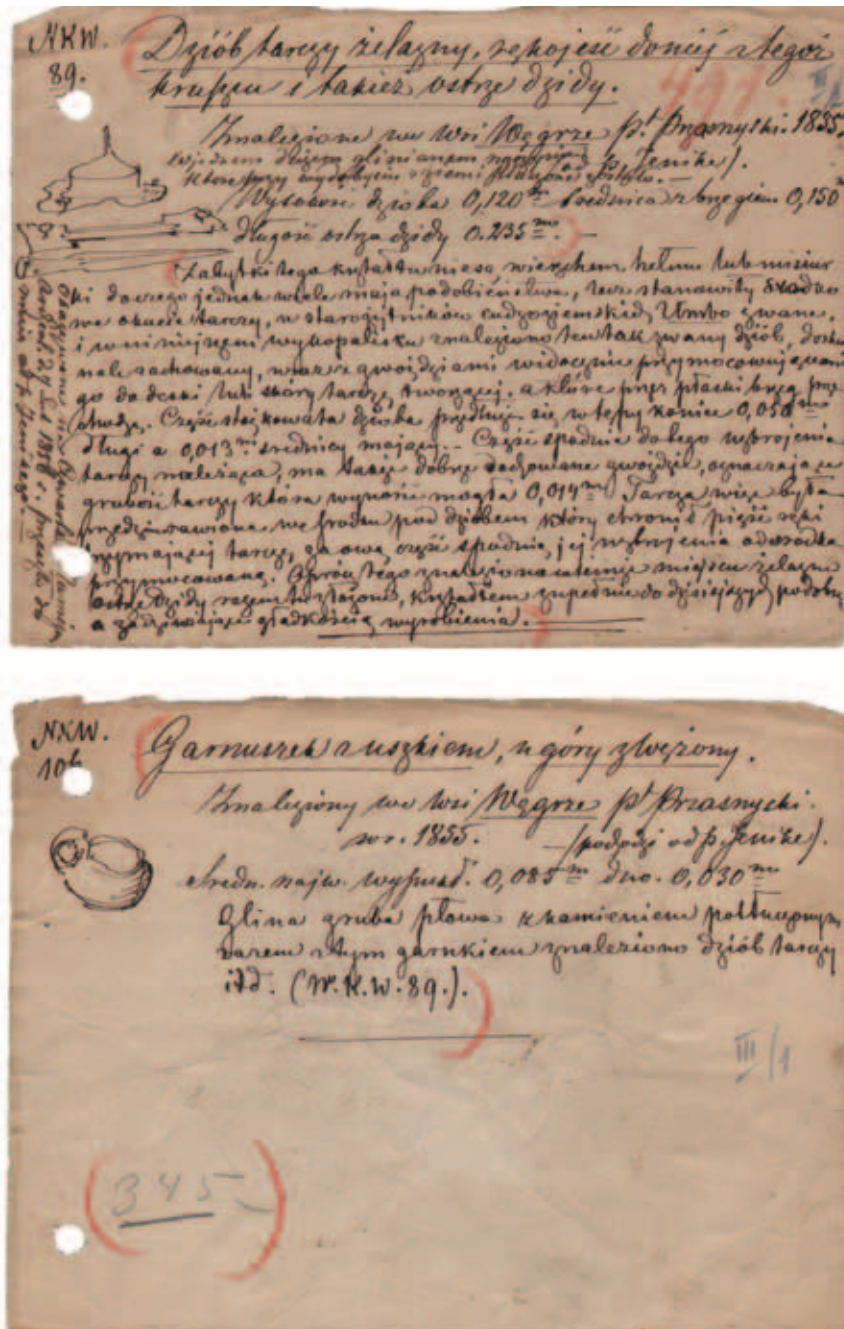 NKW.
89.
Dziób tarczy żelazny, rękojeść do niej z tegoż
kruszcu i takież ostrze dzidy.
497.
Znalezione we wsi Węgrze pt Przasnyski. 1855
w jednem dużem glinianem naczyniu p. Jenike).
które przy wydobyciu z ziemi
Wysokość dzioba 0,120 m średnica z brzegiem 0,150 m
długość ostrza dzidy 0.235 m. —
Zabytki tego kształtu nie są wierzchem hełmu lub misiur
ki do czego jednak wiele mają podobieństwa, lecz stanowiły środko
we okucie tarczy, u starożytników cudzoziemskich Umbo zwane,
i w niniejszem wykopalisku znaleziono ten tak zwany dziób, dosko
nale zachowany, wraz z gwoździami widocznie przymocowującemi
go do deski lub skóry tarczę tworzącej, a które przez płaski brzeg prze
chodzą. Część stożkowata dzioba przedłuża się w tępy koniec 0,050 m
długi a 0,013 m średnicy mający. — Część spodnia do tego uzbrojenia
tarczy należąca, ma także dobrze zachowane gwoździe, oznaczające
grubość tarczy która wynosić mogła 0,014 m Tarcza więc była
przedziurawiona we środku pod dziobem który chronił pięść ręki
trzymającej tarczę, za ową część spodnią jej uzbrojenia odśrodka
przymocowaną. Oprócz tego znaleziono na temże miejscu żelazne
ostrze dzidy razem tu złożone, kształtem zupełnie do dzisiejszych podobne
a zadziwiające gładkością wyrobienia.
1876 r.
p. Jenikego. —
NKW.
106
Garnuszek z uszkiem, u góry zwężony.
Znaleziony we wsi Węgrze pt Przasnyski.
w r. 1855. — (pochodzi od p. Jenike).
Średn. najw. wypukł. 0,085 m dno. 0,030 m
Glina gruba płowa z kamieniem potłuczonym
razem z tym garnkiem znaleziono dziób tarczy
itd. (N.K.W. 89.).
III/1
(345)